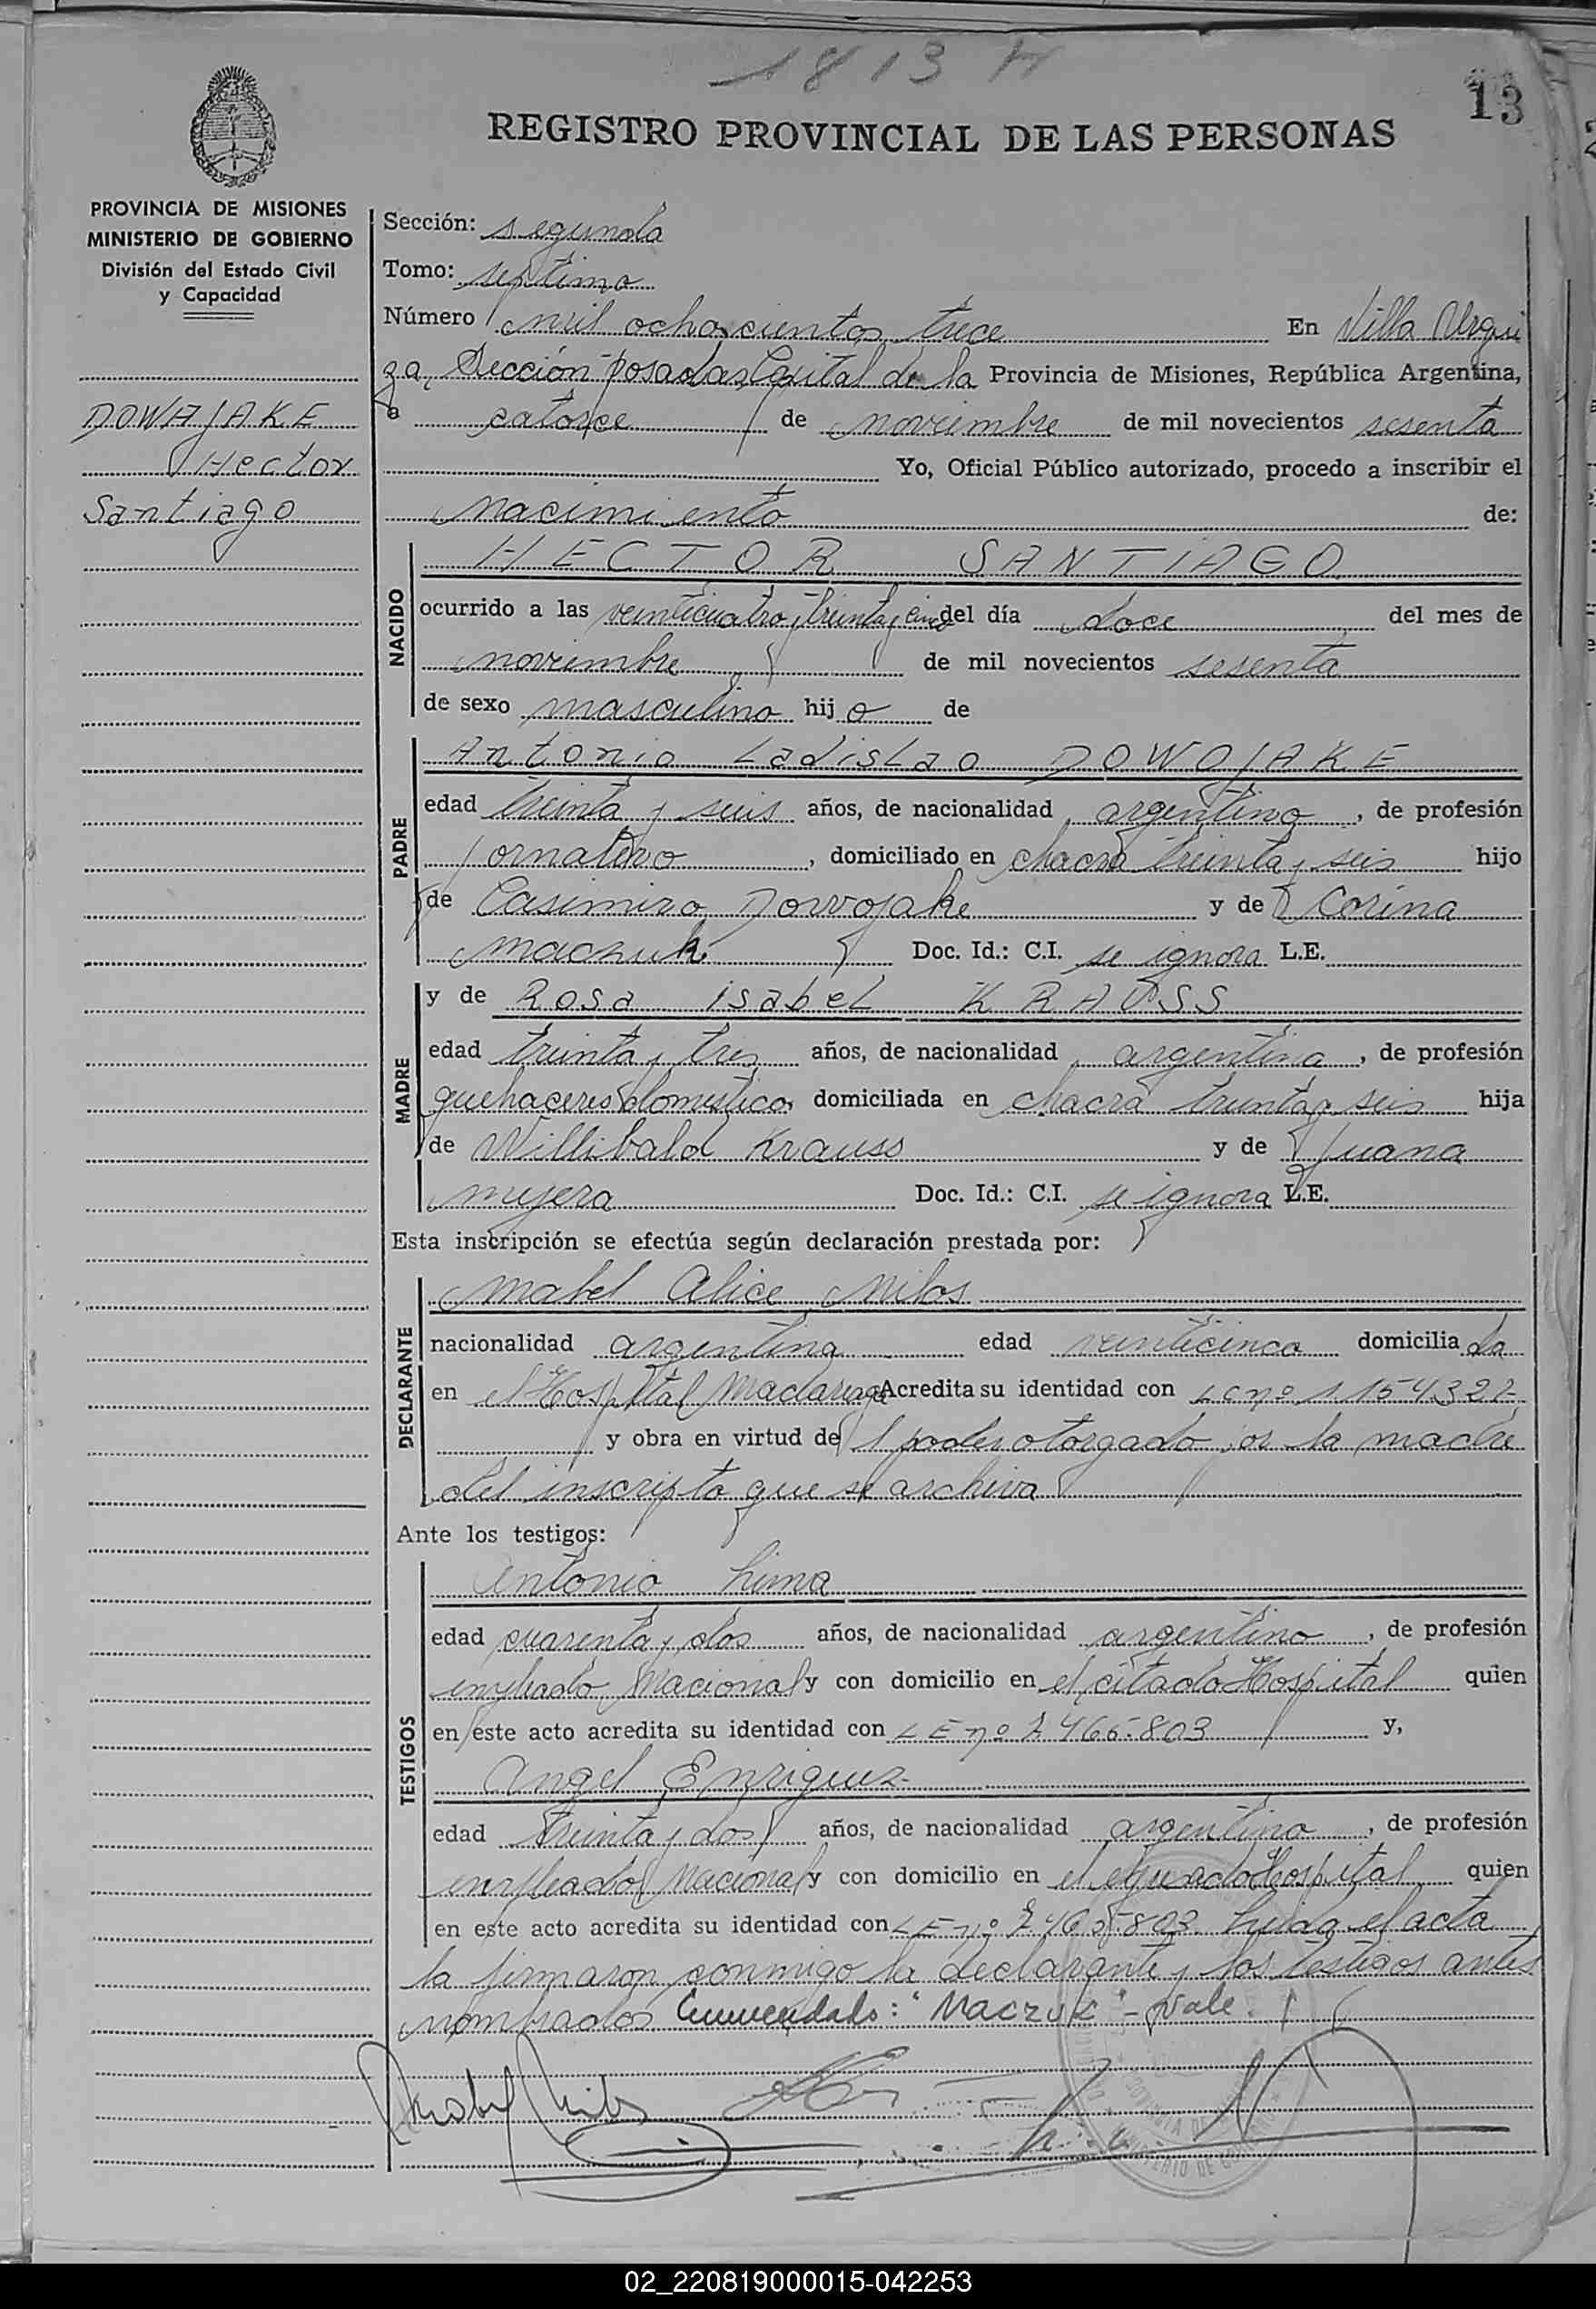 1813 H
13
REGISTRO PROVINCIAL DE LAS PERSONAS
PROVINCIA DE MISIONES
MINISTERIO DE GOBIERNO
División del Estado Civil
y Capacidad
DOWAJAKE
Hector
Santiago
Sección: segunda
Tomo: septimo
Número mil ochoscientos trece En Villa Urqui
za, Sección posadas Capital de la Provincia de Misiones, República Argentina,
a catorce de noviembre de mil novecientos sesenta
Yo, Oficial Público autorizado, procedo a inscribir el
nacimiento de:
NACIDO
HECTOR SANTIAGO
ocurrido a las veinticuatro y treinta y cinco del día doce del mes de
noviembre de mil novecientos sesenta
de sexo masculino hijo de
PADRE
Antonio Ladislao DOWOJAKE
edad treinta y seis años, de nacionalidad argentino, de profesión
jornalero, domiciliado en chacra treinta y seis hijo
de Casimiro Dowojake y de Corina
Maczuk Doc. Id.: C.I. se ignora L.E.
MADRE
y de Rosa isabel KRAUSS
edad treinta y tres años, de nacionalidad argentina, de profesión
quehaceres domesticos domiciliada en chacra treinta y seis hija
de Willibald Krauss y de Juana
mujera Doc. Id.: C.I. se ignora L.E.
Esta inscripción se efectúa según declaración prestada por:
DECLARANTE
Mabel Alice Milos
nacionalidad argentina edad veinticinco domiciliada
en el Hospital Madariaga Acredita su identidad con LC nº 1.154.322
y obra en virtud del poder otorgado por la madre
del inscripto que se archiva
Ante los testigos:
TESTIGOS
Antonio Lima
edad cuarenta y dos años, de nacionalidad argentino, de profesión
empleado Nacional y con domicilio en el citado Hospital quien
en este acto acredita su identidad con LE nº 7.465.803 y,
Angel Enriquez
edad treinta y dos años, de nacionalidad argentino, de profesión
empleado Nacional y con domicilio en el Hospital quien
en este acto acredita su identidad con LE nº 7.465.803. Leida el acta
la firmaron conmigo la declarante y los testigos antes
nombrados. Enmendado: "Maczuk" - Vale.
Mabel Milos
02_220819000015-042253